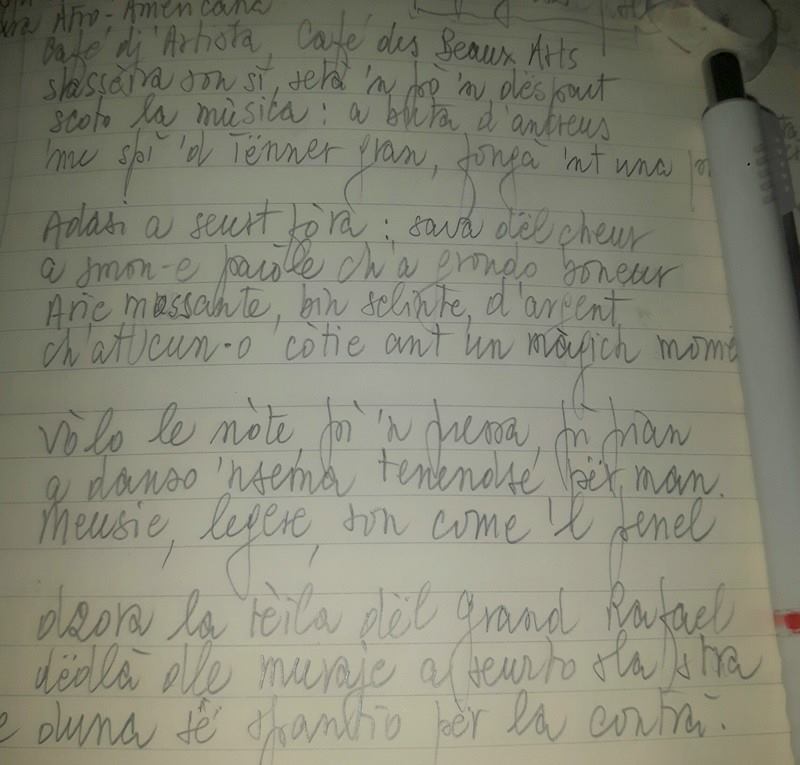 Afro-Americana
Cafè dj'Artista, Cafè des Beaux Arts
stasseira son sì, setà 'n pò 'n dëspart
scoto la mùsica: a buta d'antreus
'me spì 'd Tënner gran, fongà 'nt una
Adasi a seurt fòra: sava dël cheur
a smon-e paròle ch'a grondo boneur
Arie mossante, bin selinte, d'argent
ch'at cun-o còtie ant un màgich mome
Vòlo le nòte, pì 'n pressa, pì pian
a danso 'nsema tenendse për man.
Meusie, legere, son come 'l penel
dzora la tèila dël grand Rafael
dëdlà dle muraje a seurto sla stra
e duna së spantio për la contrà.